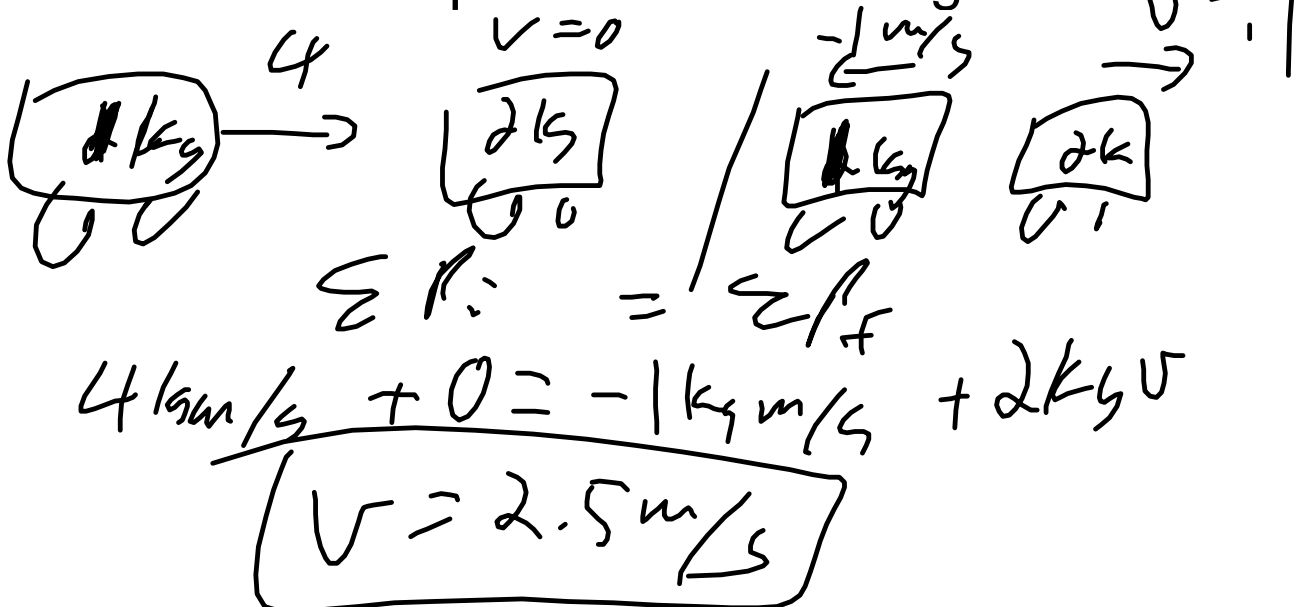 4 v = 0 -1 m/s
1 kg 2 kg 1 kg 2 k
Σ Pi = Σ Pf
4 kgm/s + 0 = -1 kgm/s + 2 kg v
v = 2.5 m/s